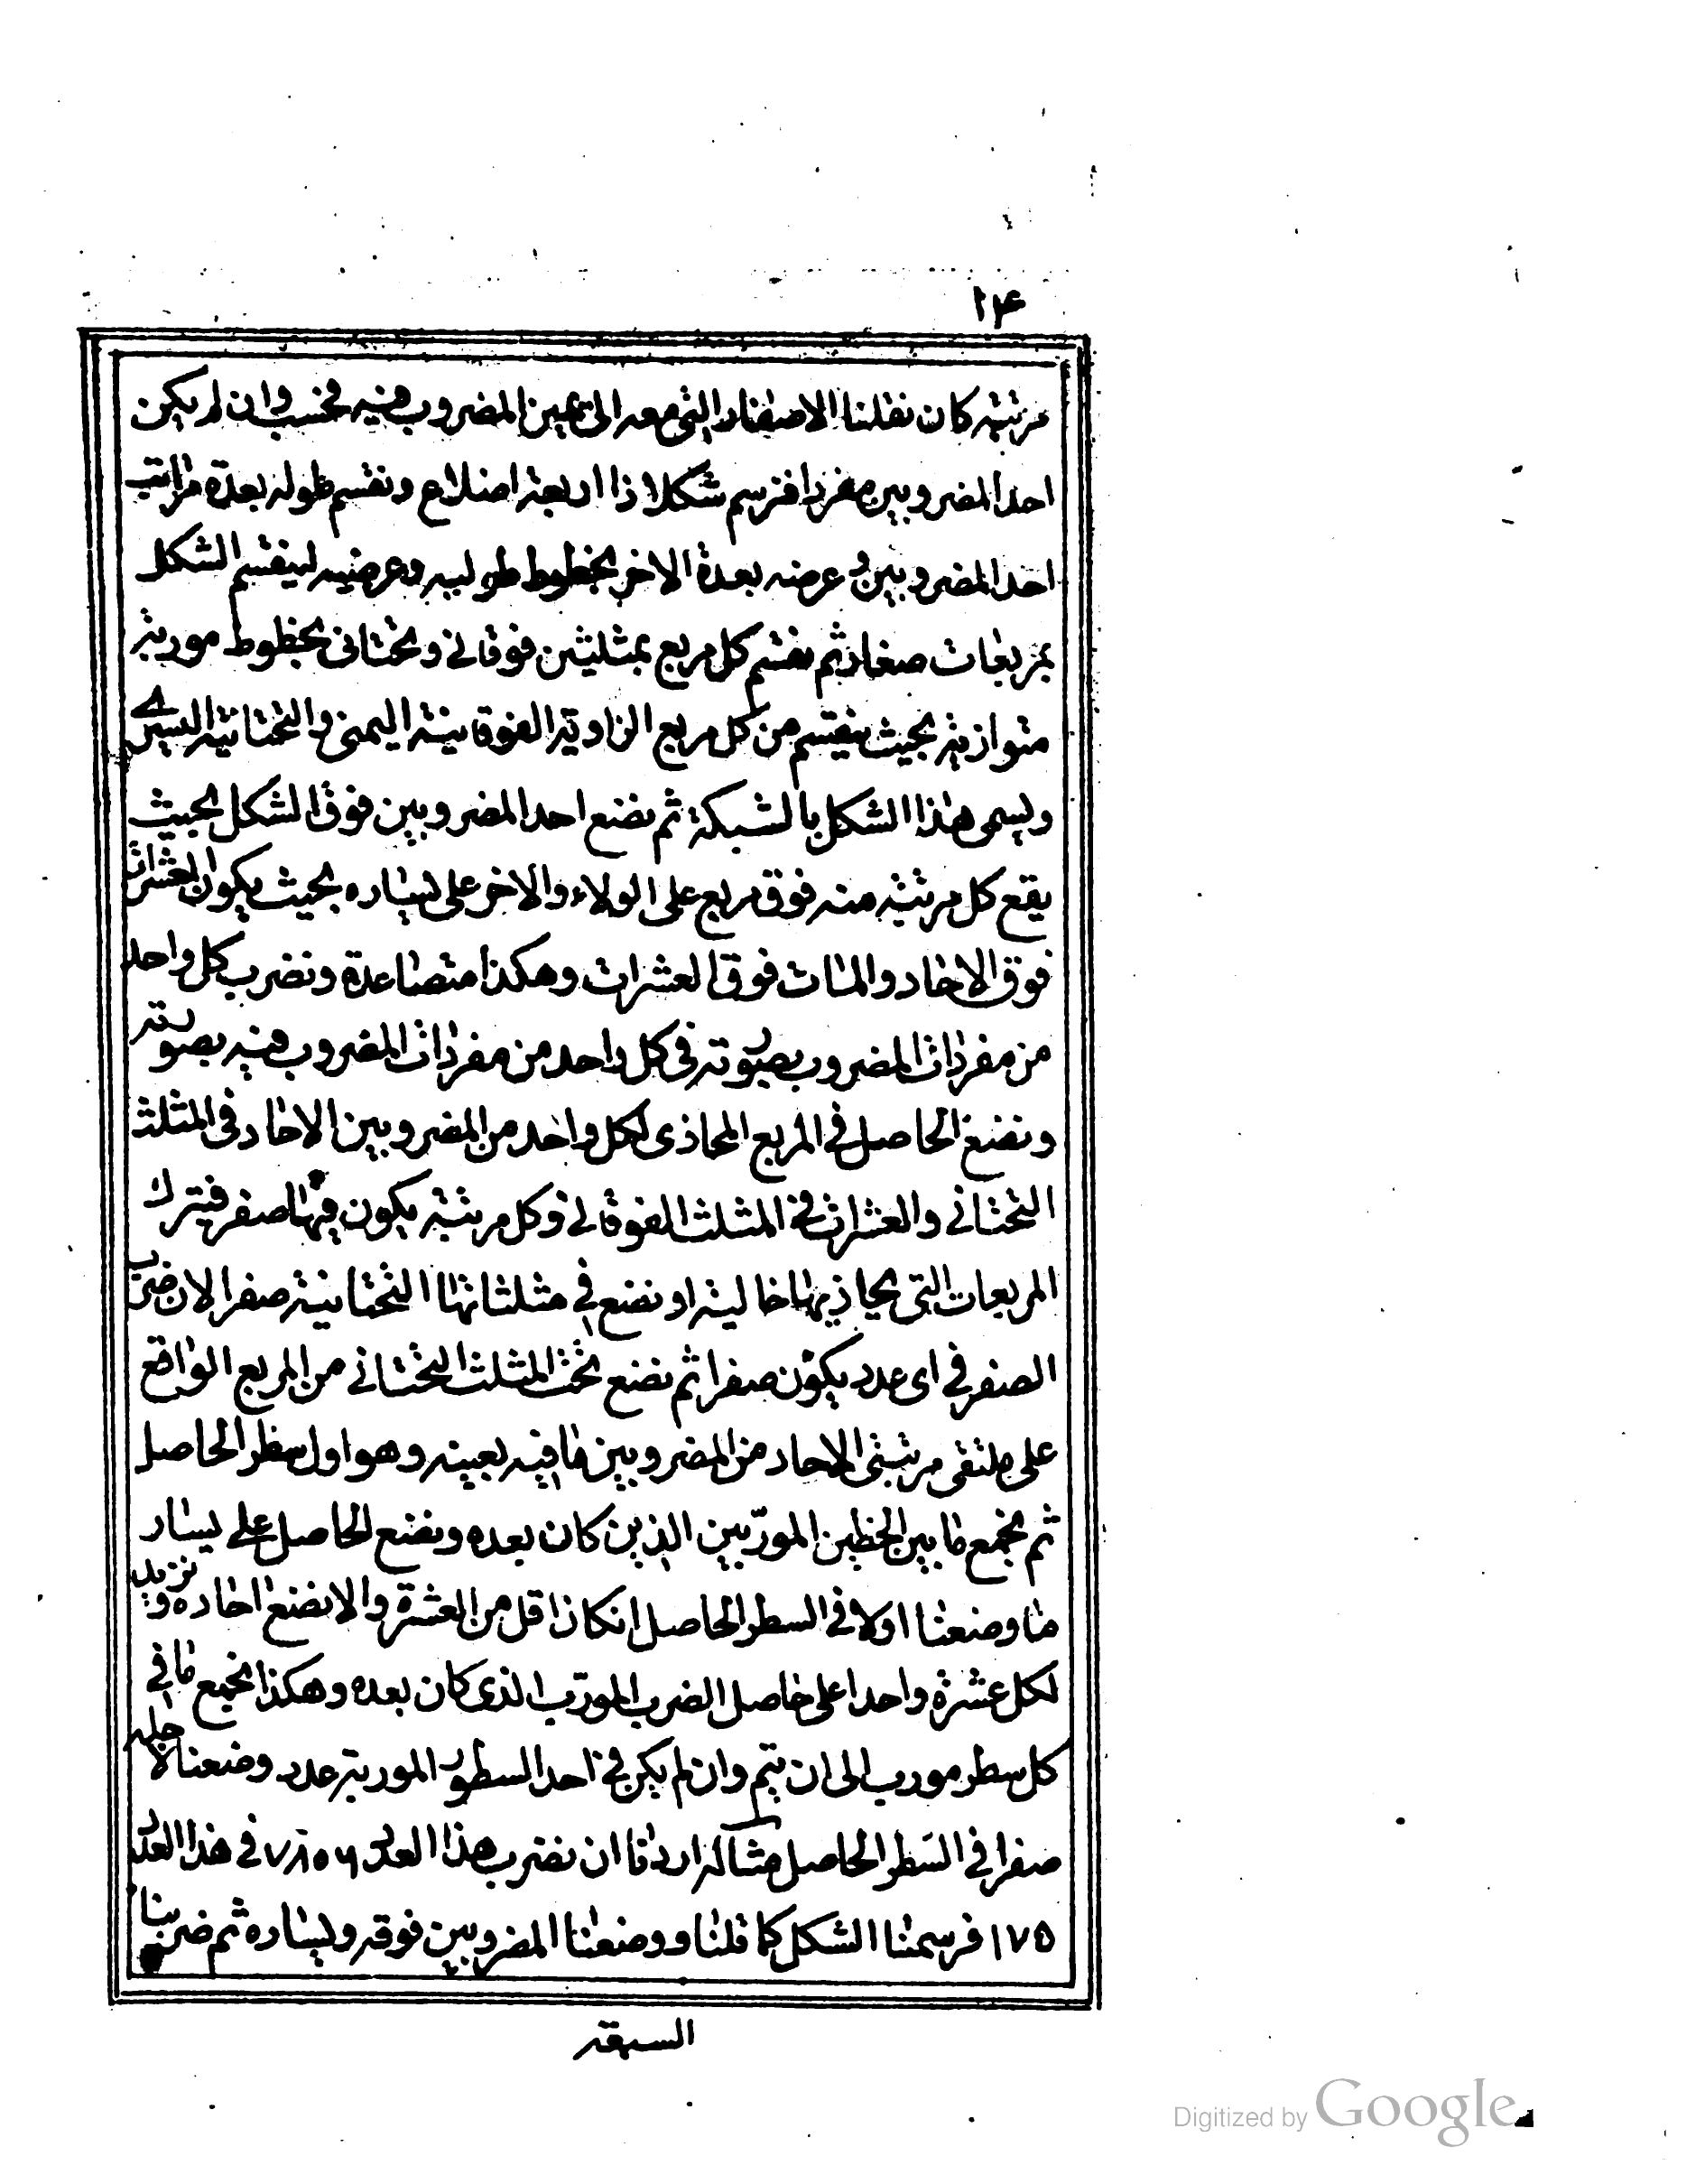 ۱۴
مرتبته كان نقلنا الاصفار التى معه الى يمين المضروب فيه فحسب وان لم يكن
احد المضروبين مفردا فنرسم شكلا ذا اربعة اضلاع ونقسم طوله بعدة مراتب
احد المضروبين وعرضه بعدة الاخر بخطوط طوليه وعرضيه لينقسم الشكل
بمربعات صغار ثم نقسم كل مربع بمثلثين فوقانى وتحتانى بخطوط موربة
متوازية بحيث ينقسم من كل مربع الزاوية الفوقانية اليمنى والتحتانية اليسرى
ويسمى هذا الشكل بالشبكة ثم نضع احد المضروبين فوق الشكل بحيث
يقع كل مرتبة منه فوق مربع على الولاء والاخر على يساره بحيث يكون العشرات
فوق الاحاد والمئات فوق العشرات وهكذا متصاعدة ونضرب كل واحد
من مفردات المضروب بصورته فى كل واحد من مفردات المضروب فيه بصورته
ونضع الحاصل فى المربع المحاذى لكل واحد من المضروبين الاحاد فى المثلث
التحتانى والعشرات فى المثلث الفوقانى وكل مرتبة يكون فيها صفر فيترك
المربعات التى يحاذيها خالية او نضع فى مثلثاتها التحتانية صفرا لان ضرب
الصفر فى اى عدد يكون صفرا ثم نضع تحت المثلث التحتانى من المربع الواقع
على ملتقى مرتبتى الاحاد من المضروبين ما فيه بعينه وهو اول سطر الحاصل
ثم نجمع ما بين الخطين الموربين الذين كان بعده ونضع الحاصل على يسار
ما وضعنا اولا فى السطر الحاصل انكان اقل من العشرة والا نضع احاده ونزيد
لكل عشرة واحدا على حاصل الضرب المورب الذى كان بعده وهكذا نجمع ما فى
كل سطر مورب الى ان يتم وان لم يكن فى احد السطور الموربة عدد وضعنا لاجله
صفرا فى السطر الحاصل مثاله اردنا ان نضرب هذا العدد ۷۸۰۵۶ فى هذا العدد
۱۷۵ فرسمنا الشكل كما قلنا ووضعنا المضروبين فوقه ويساره ثم ضربنا
السبعة
Digitized by Google